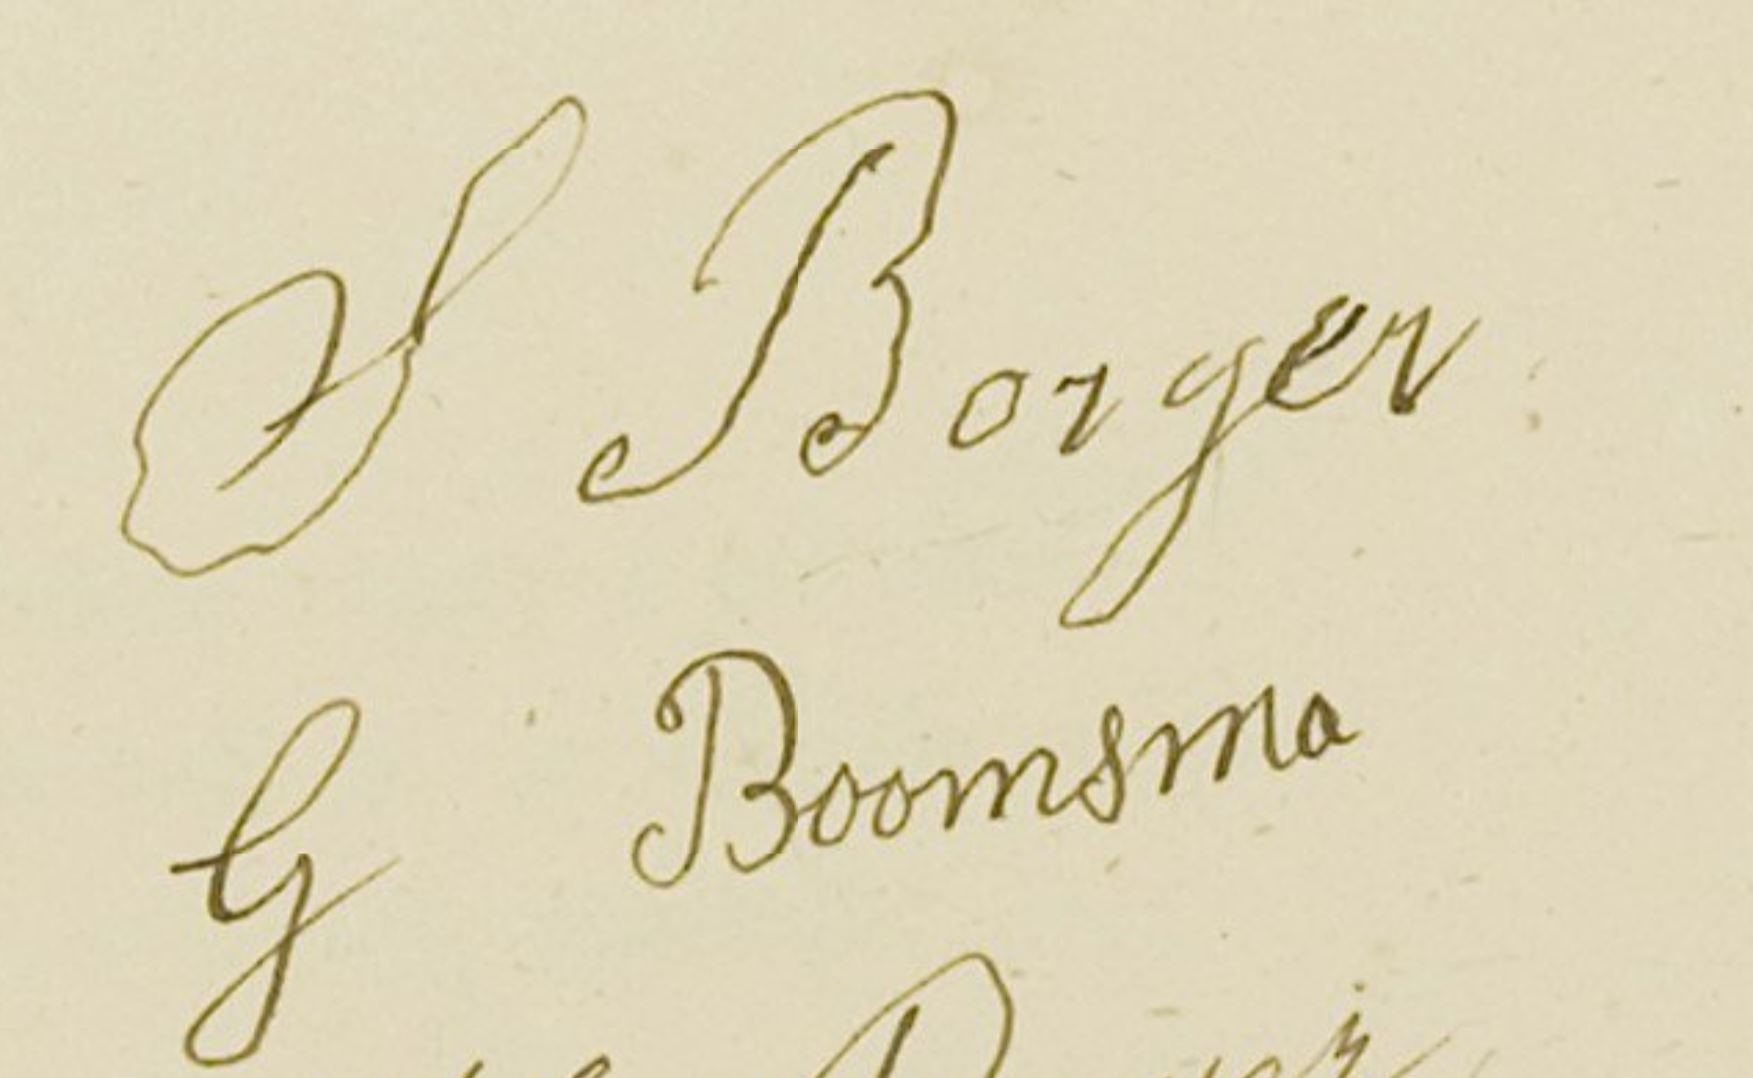 S Borger
G Boomsma